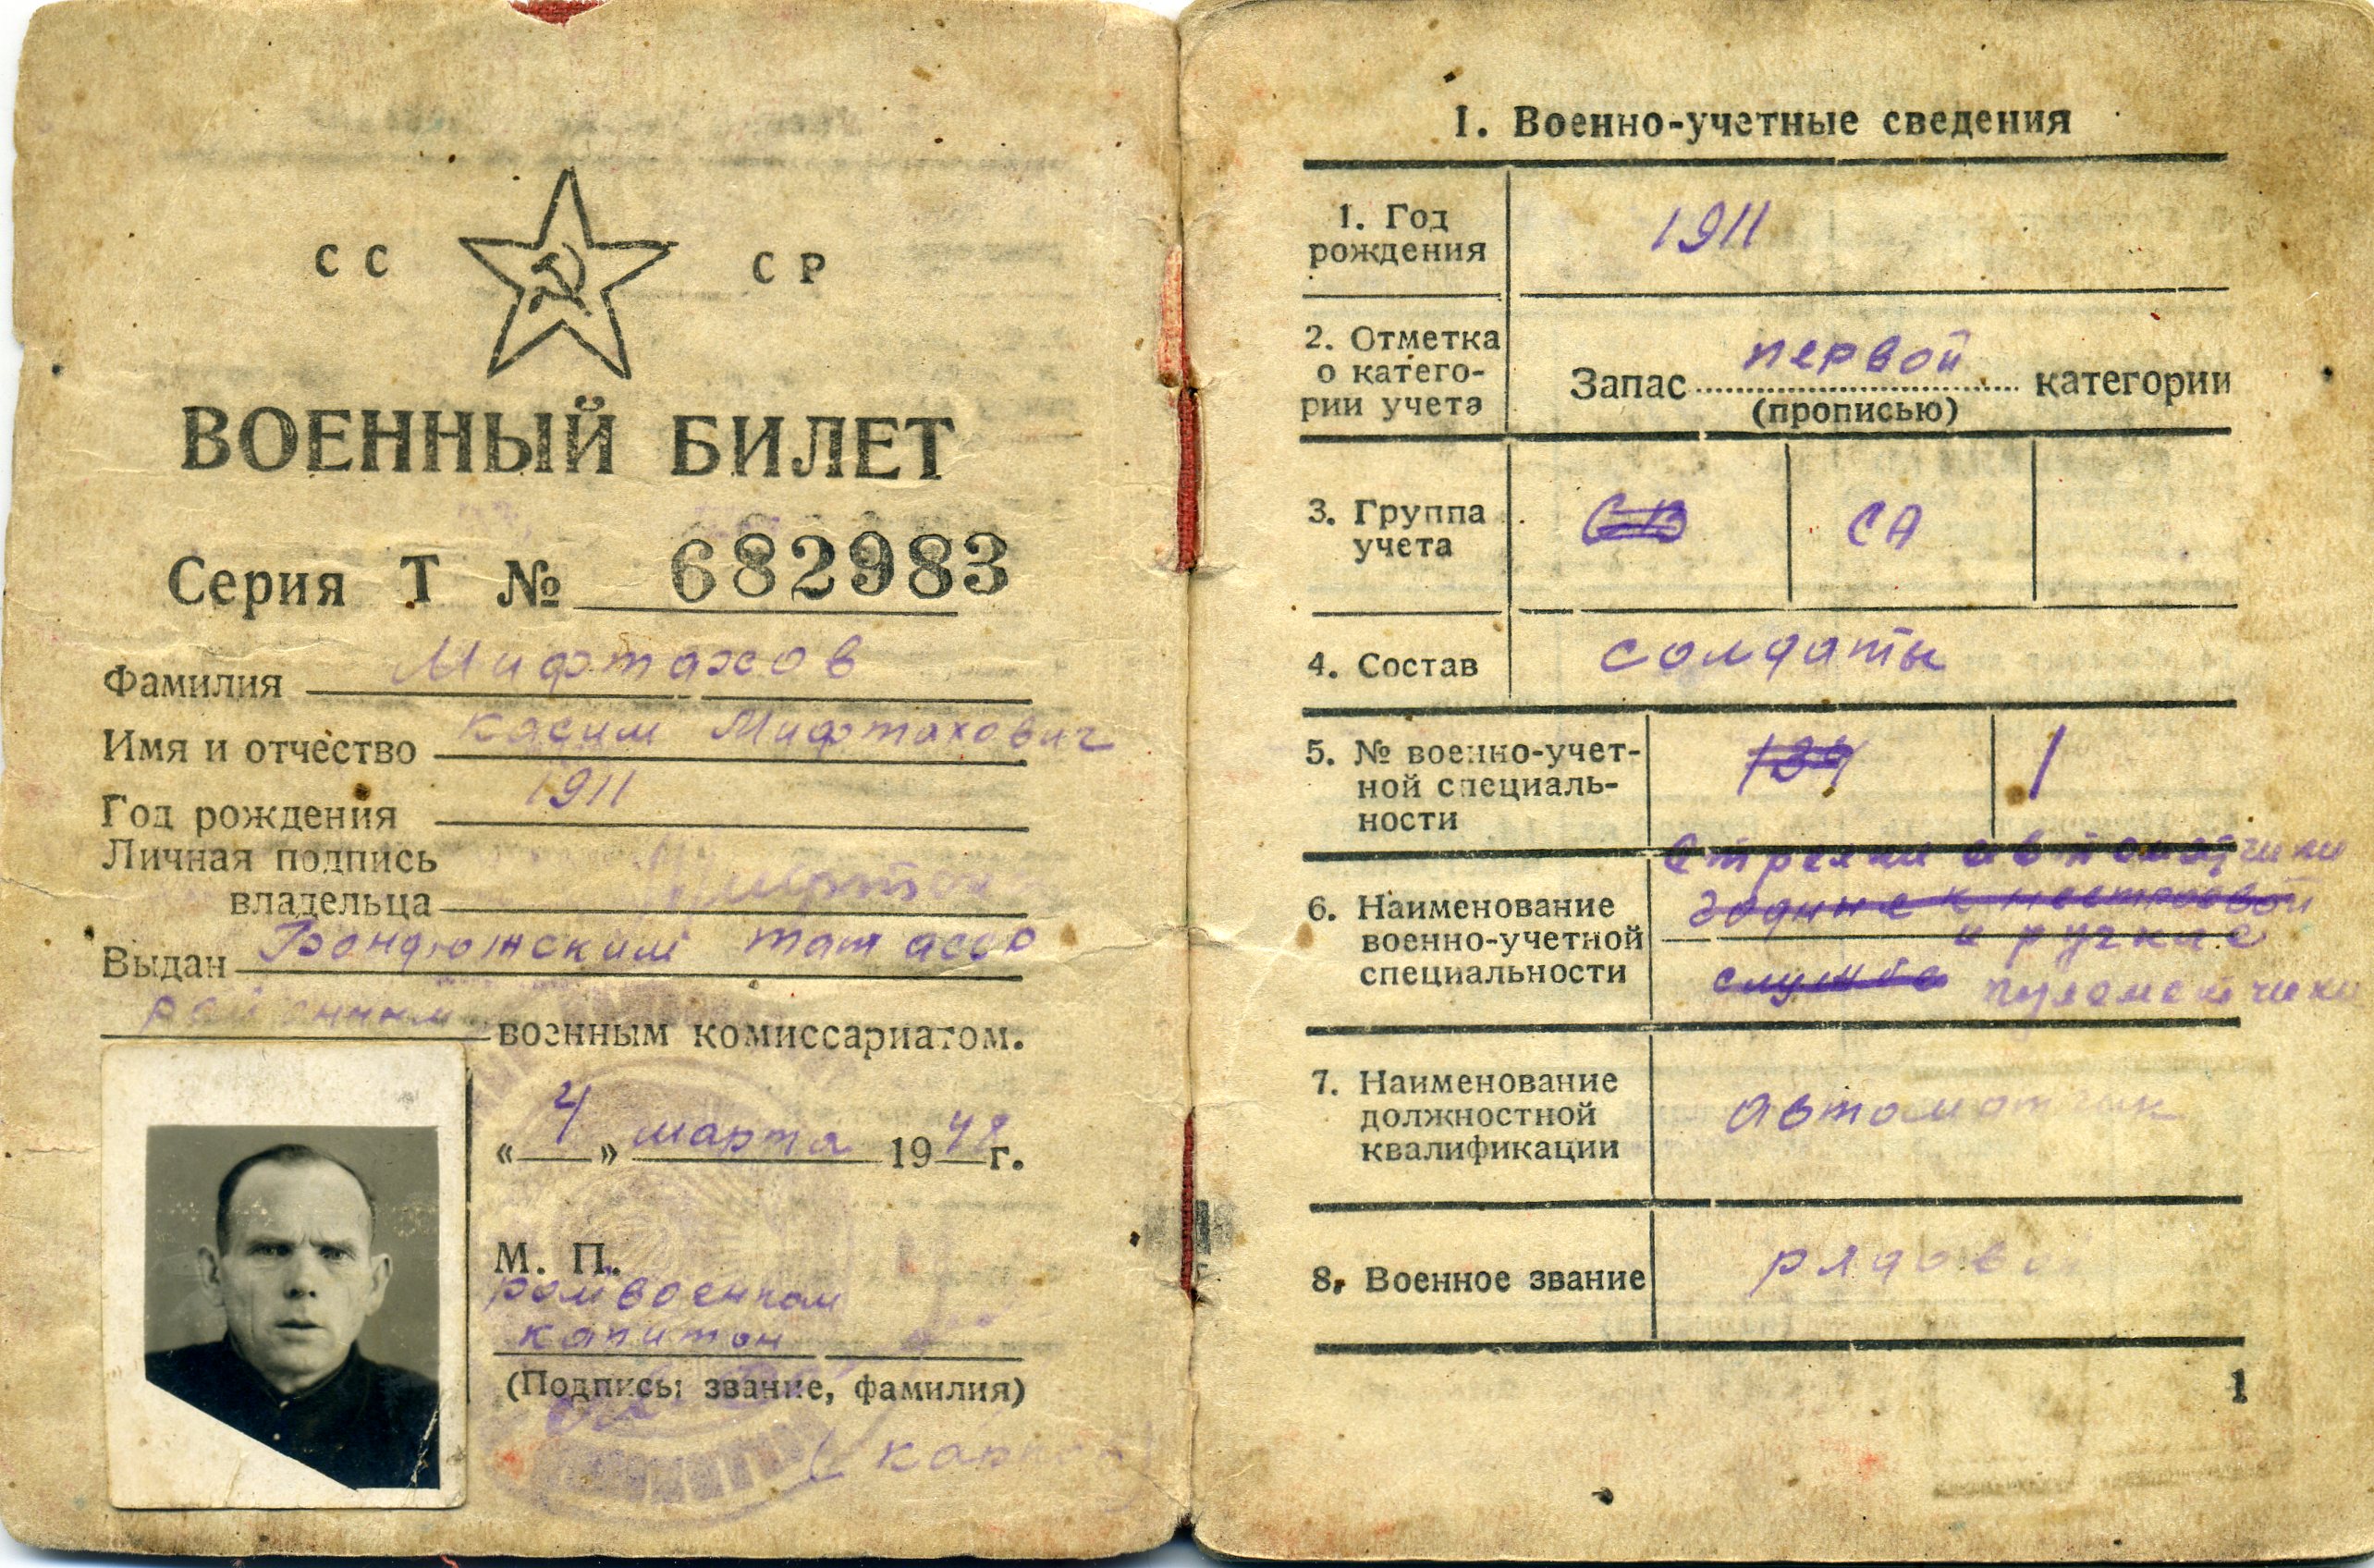 СС СР
ВОЕННЫЙ БИЛЕТ
Серия Т № 682983
Фамилия Мифтахов
Имя и отчество Касим Мифтахович
Год рождения 1911
Личная подпись
владельца
Выдан Бондюжским тат асср
районным военным комиссариатом.
«4» марта 1948 г.
М. П.
райвоенком
капитан
(Подпись, звание, фамилия)
I. Военно-учетные сведения
1. Год
рождения
1911
2. Отметка
о катего-
рии учета
Запас первой категории
(прописью)
3. Группа
учета
СВ
СА
4. Состав
солдаты
5. № военно-учет-
ной специаль-
ности
134
1
6. Наименование
военно-учетной
специальности
Стрелки автоматчики
годные к нестроевой
и ручные
службе пулеметчики
7. Наименование
должностной
квалификации
автоматчик
8. Военное звание
рядовой
1